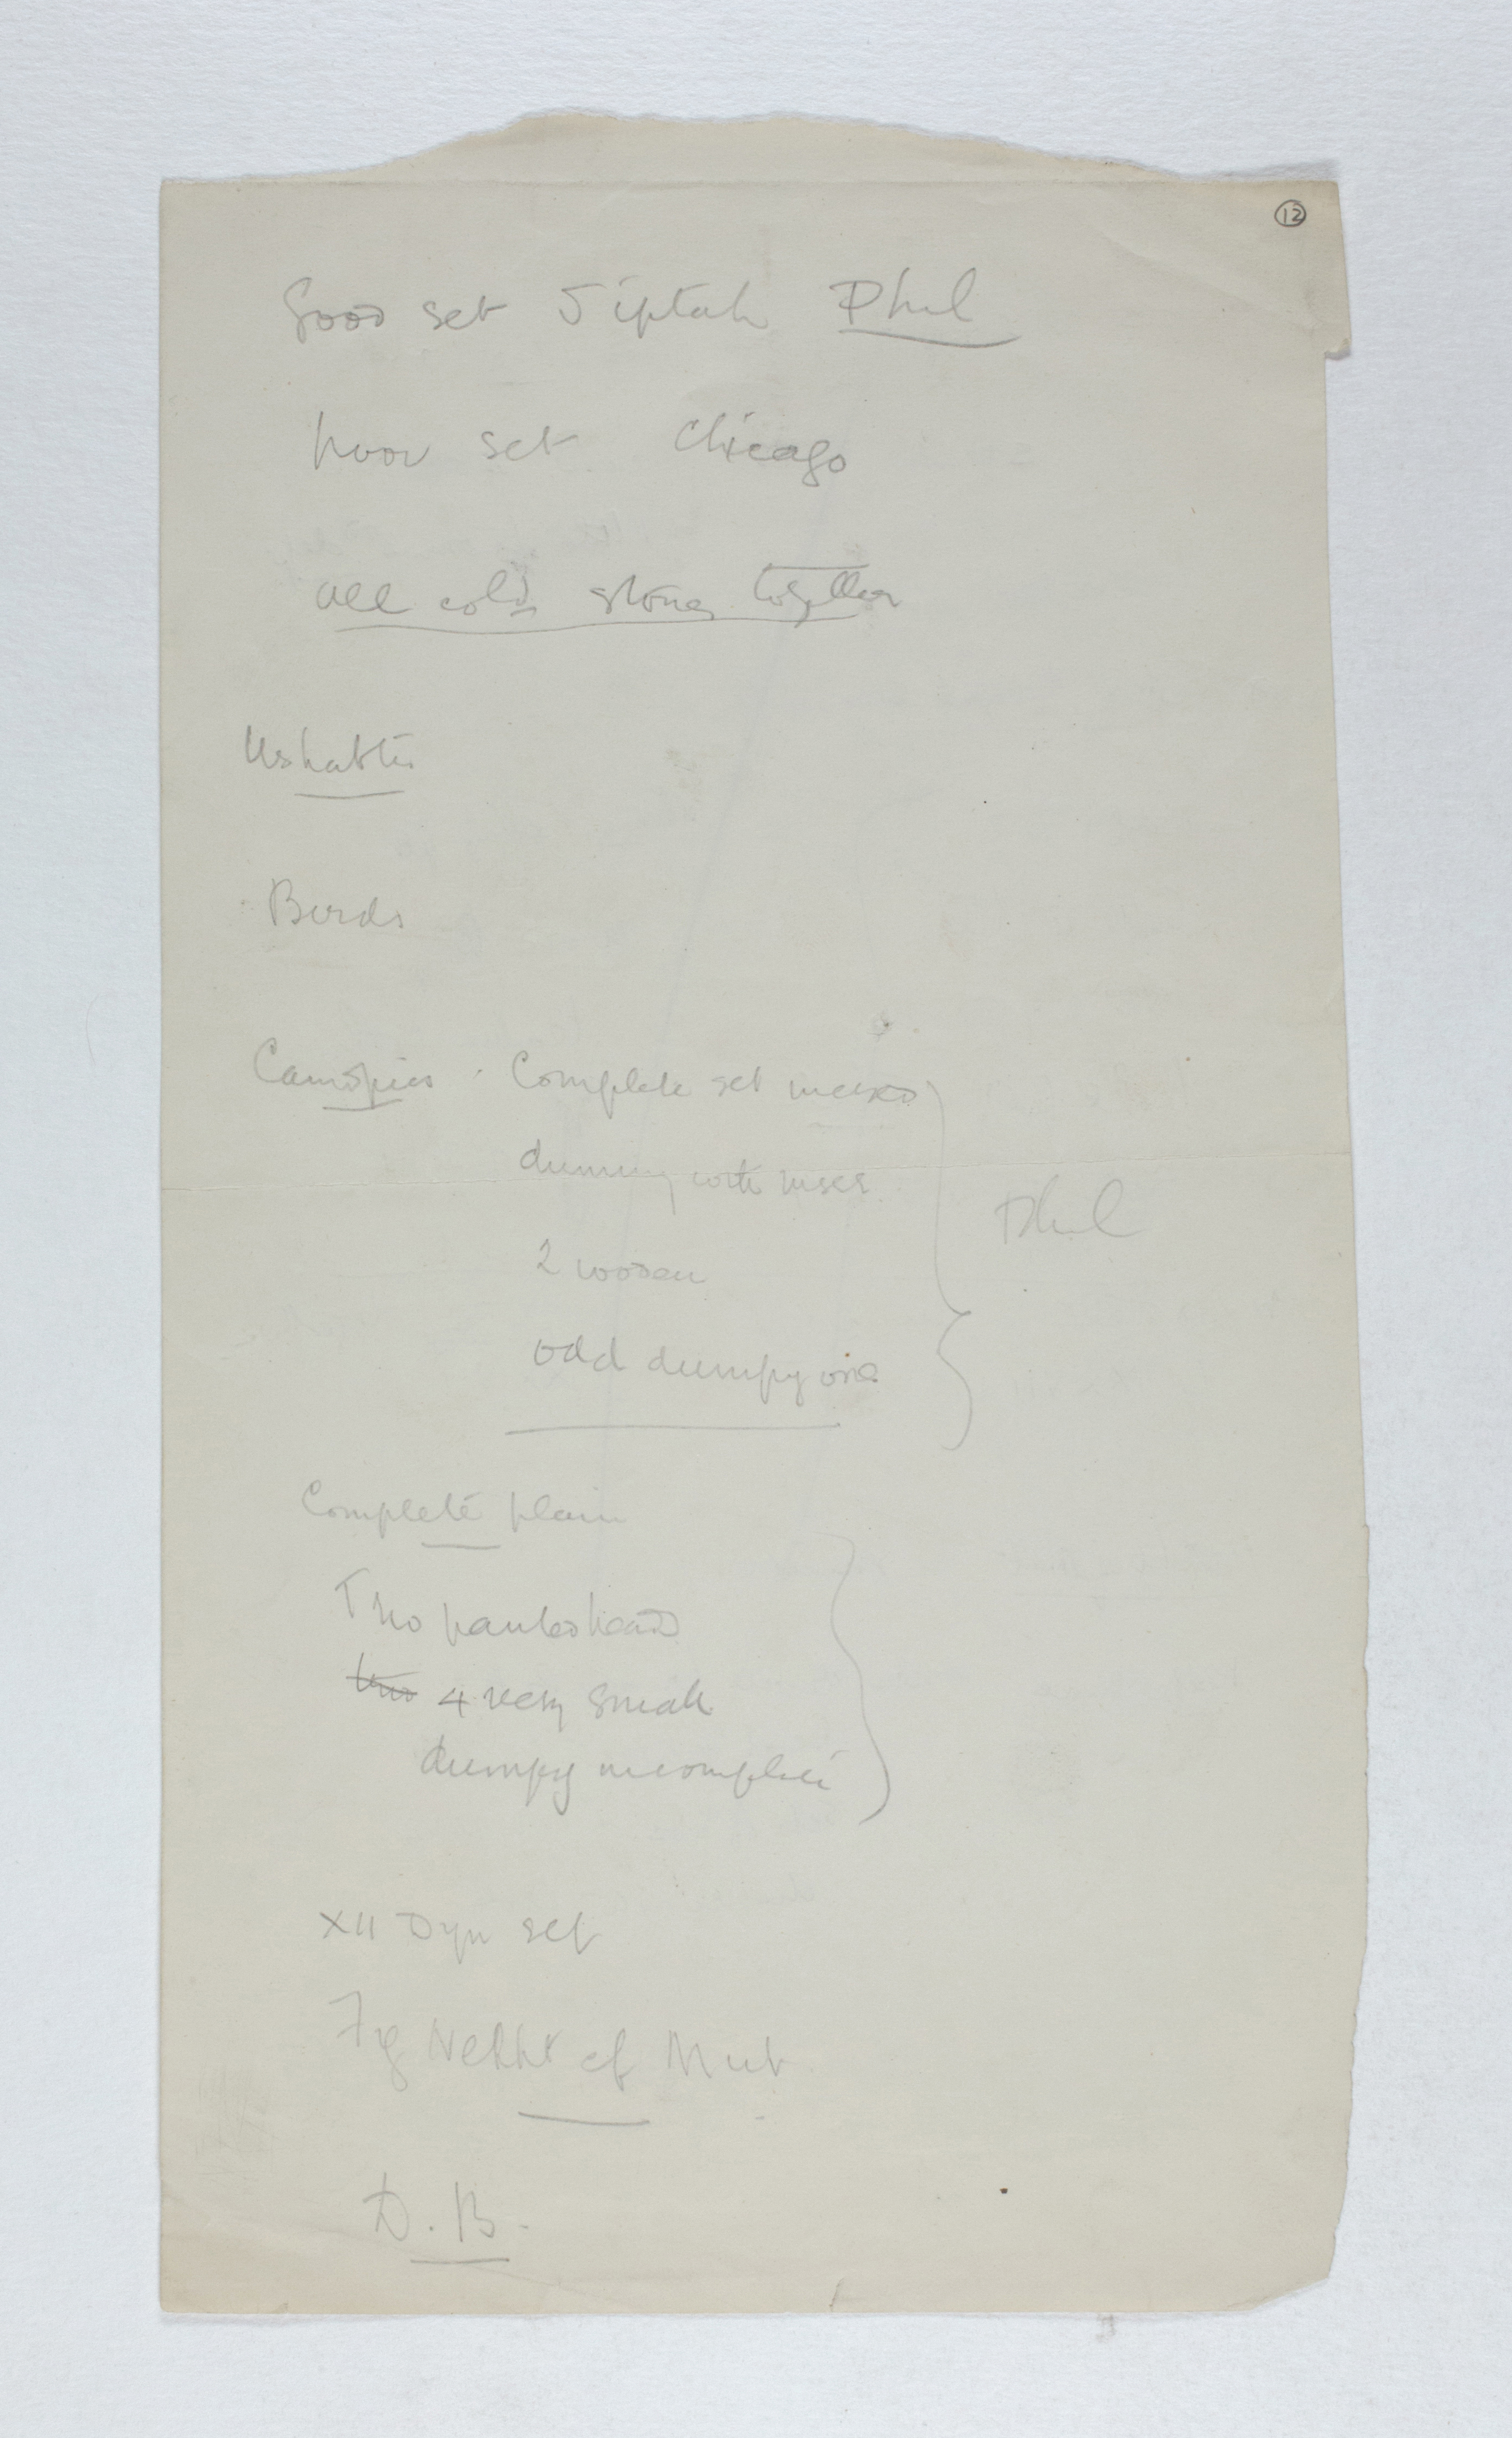 12
Good set Siptah Phil
poor set Chicago
all cold stones together
Ushabtis
Birds
Canopics Complete set
dummy with inscr.
2 wooden
odd dumpy one
Phil
Complete plain
Two painted heads
two 4 very small
dumpy incomplete
XII Dyn set
Fig Nekht cf Mut
D.B.